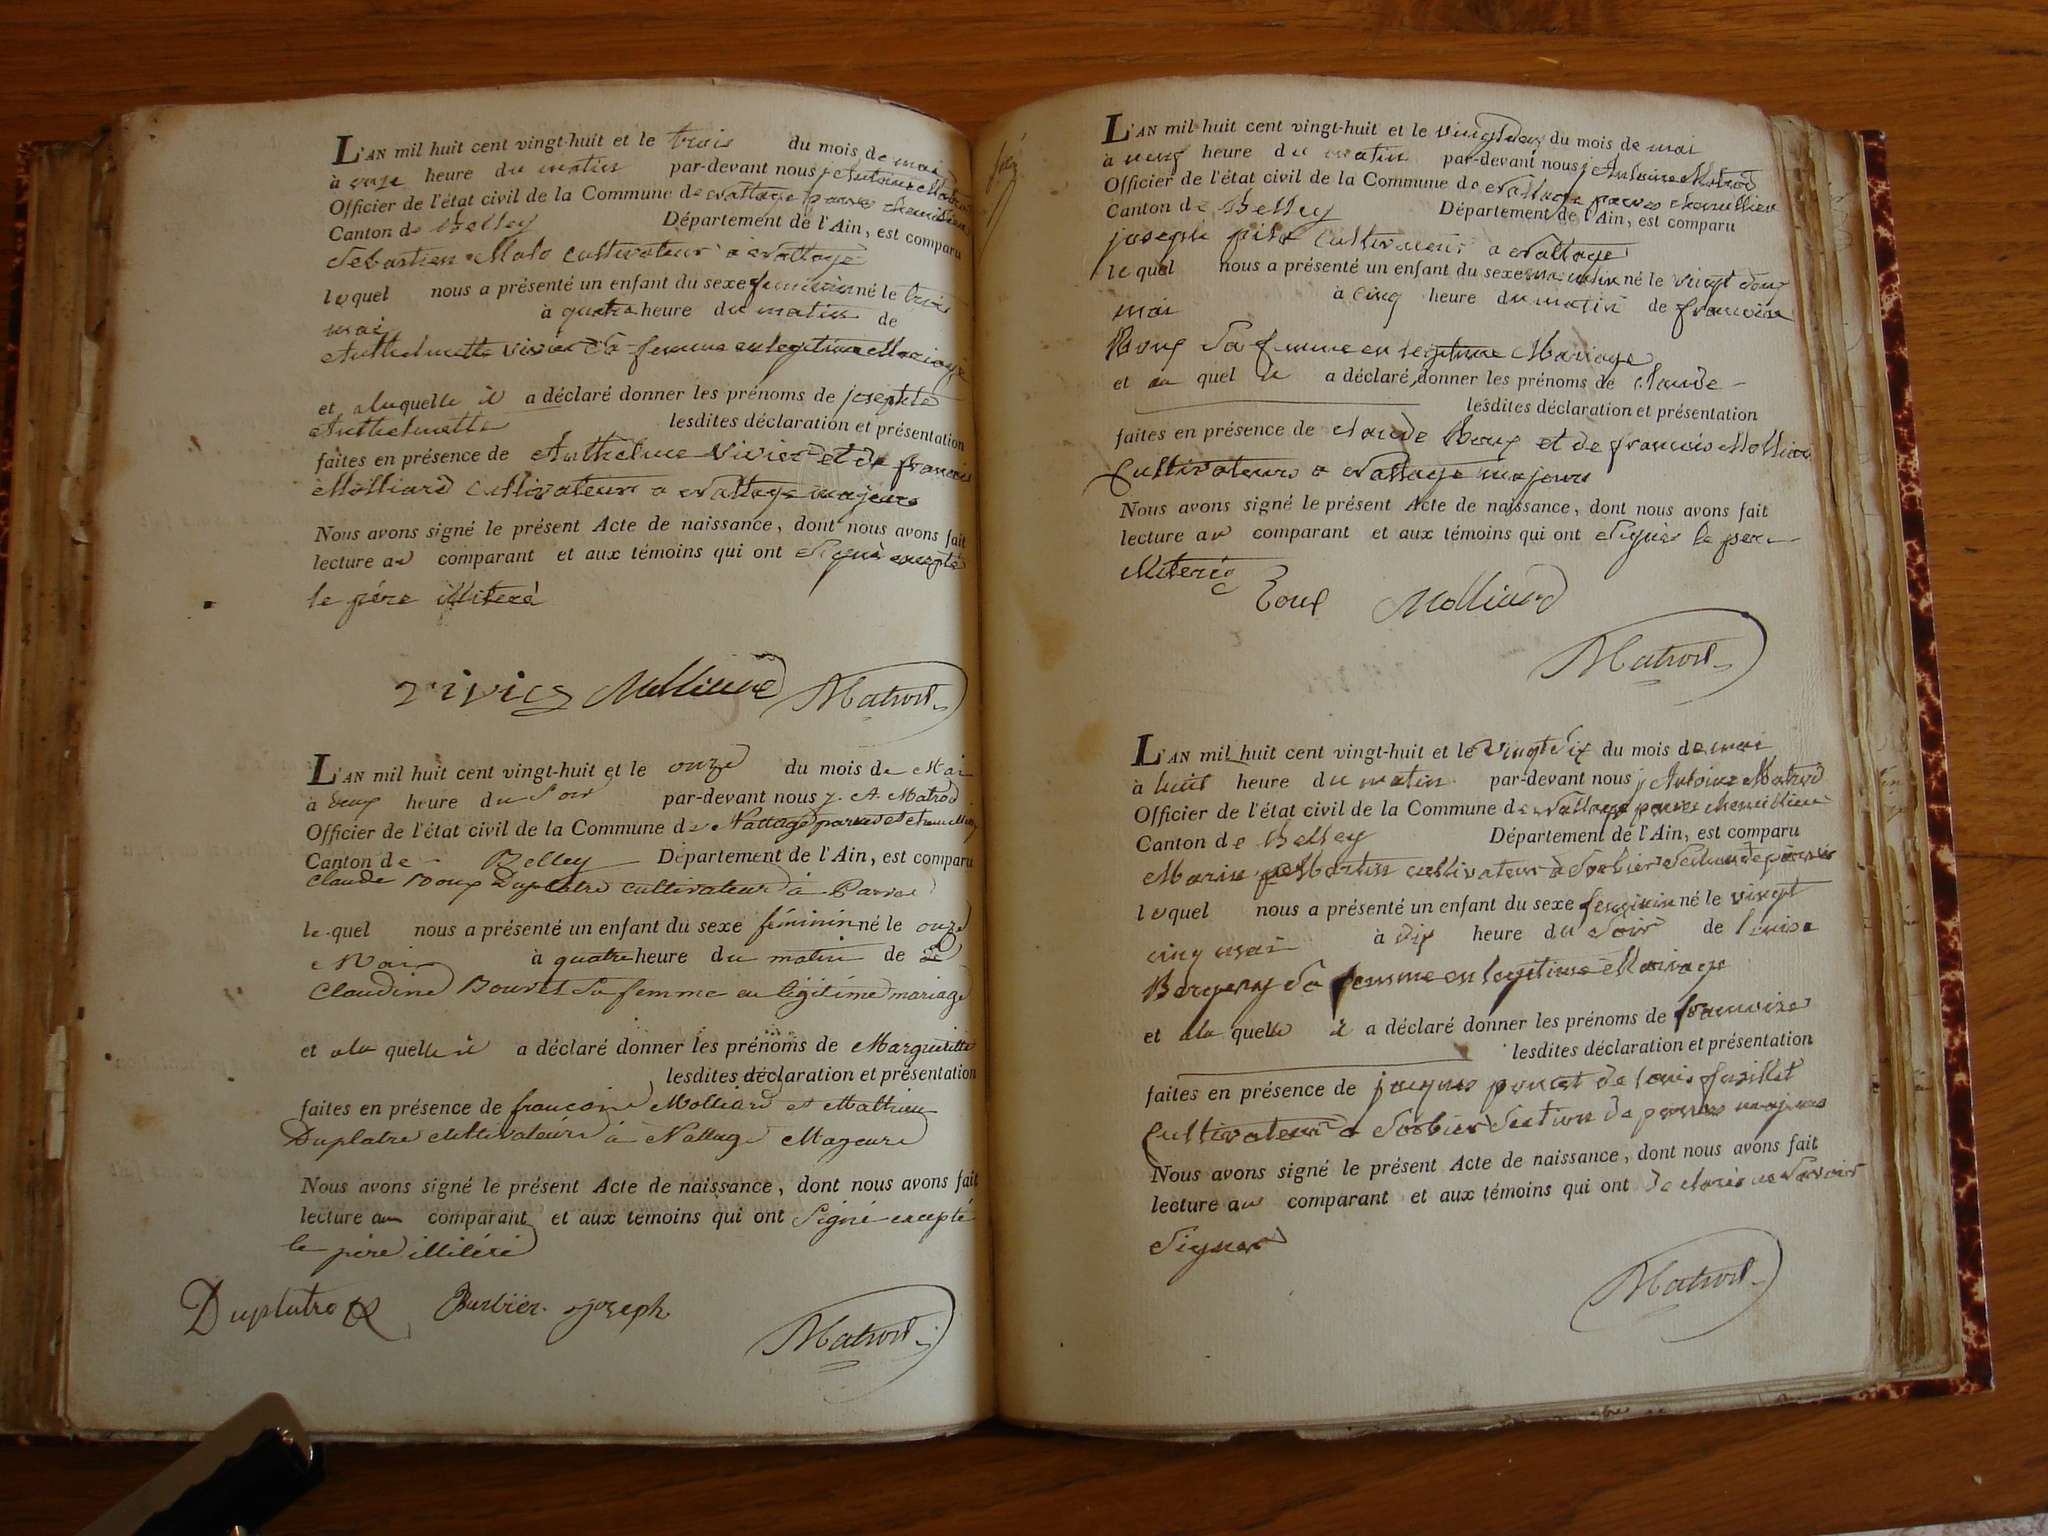 L'AN mil huit cent vingt-huit et le trois du mois de mai
à onze heure du matin par-devant nous j Antoine Matrod
Officier de l'état civil de la Commune de Nattage parves chemillieu
Canton de Belley Département de l'Ain, est comparu
Sebastien Malo Cultivateur a Nattage
lequel nous a présenté un enfant du sexe feminin né le trois
mai à quatre heure du matin de
Anthelmette Vivier Sa femme en legitime Mariage
et alaquelle il a déclaré donner les prénoms de josephte
Anthelmette lesdites déclaration et présentation
faites en présence de Anthelme Vivier et de francois
Molliard Cultivateurs a Nattage majeurs
Nous avons signé le présent Acte de naissance, dont nous avons fait
lecture au comparant et aux témoins qui ont Signé excepté
le père illiteré
Vivier Molliard Matrod
L'AN mil huit cent vingt-huit et le onze du mois de Mai
à deux heure du Soir par-devant nous j. A. Matrod
Officier de l'état civil de la Commune de Nattage parves et
Canton de Belley Département de l'Ain, est comparu
Claude Roux Duplatre cultivateur à Parves
le quel nous a présenté un enfant du sexe féminin né le onze
Mai à quatre heure du matin de
Claudine Bouvet Sa femme en légitime mariage
et ala quelle il a déclaré donner les prénoms de Margueritte
lesdites déclaration et présentation
faites en présence de francois Molliard et Mathieu
Duplatre cultivateurs à Nattage Majeurs
Nous avons signé le présent Acte de naissance, dont nous avons fait
lecture au comparant et aux témoins qui ont Signé excepté
le père illiteré
Duplatre Barbier joseph
Matrod
L'AN mil huit cent vingt-huit et le vingt deux du mois de mai
à neuf heure du matin par-devant nous j Antoine Matrod
Officier de l'état civil de la Commune de Nattage parves chemillieu
Canton de Belley Département de l'Ain, est comparu
joseph Cultivateur a Nattage
lequel nous a présenté un enfant du sexe masculin né le vingt deux
mai à cinq heure du matin de francoise
Roux Sa femme en legitime Mariage
et au quel il a déclaré donner les prénoms de claude
lesdites déclaration et présentation
faites en présence de claude Roux et de francois Molliard
Cultivateurs a Nattage majeurs
Nous avons signé le présent Acte de naissance, dont nous avons fait
lecture au comparant et aux témoins qui ont Signés le pere
illiteré
Roux Molliard
Matrod
L'AN mil huit cent vingt-huit et le Vingt Six du mois de mai
à huit heure du matin par-devant nous j Antoine Matrod
Officier de l'état civil de la Commune de Nattage parves chemillieu
Canton de Belley Département de l'Ain, est comparu
Marin Martin cultivateur à Sorbier Section de parves
lequel nous a présenté un enfant du sexe feminin né le vingt
cinq mai à dix heure du Soir de louise
Sa femme en legitime Mariage
et ala quelle il a déclaré donner les prénoms de francoise
lesdites déclaration et présentation
faites en présence de jacques poncet de louis
Cultivateurs a Sorbier Section de parves majeurs
Nous avons signé le présent Acte de naissance, dont nous avons fait
lecture au comparant et aux témoins qui ont declarés ne Savoir
Signer
Matrod